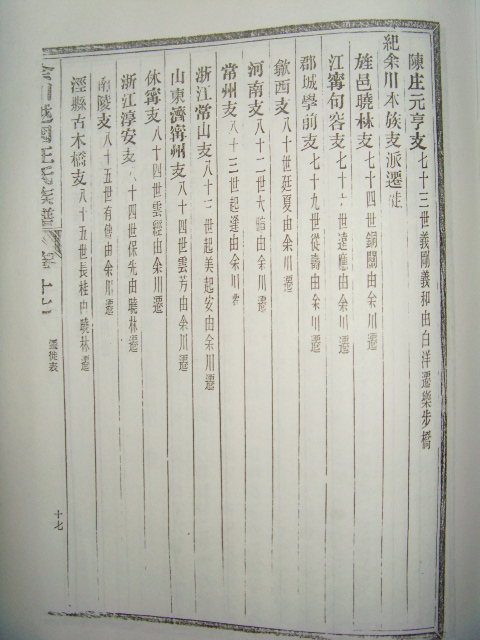 陳庄元亨支七十三世義剛義和由白洋遷樂步橋
紀余川本族支派遷徙
旌邑曉林支七十四世銅關由余川遷
江寗句容支七十六世遠應由余川遷
郡城學前支七十九世從壽由余川遷
歙西支八十世廷夏由余川遷
河南支八十二世大由余川遷
常州支八十三世起逢由余川遷
浙江常山支八十三世起美起安由余川遷
山東濟甯州支八十四世雲芳由余川遷
休寗支八十四世雲經由余川遷
浙江淳安支八十四世保先由曉林遷
南陵支八十五世有由余川遷
涇縣古木橋支八十五世長桂由曉林遷
余川越國汪氏族譜
卷十七
遷徙表
十七